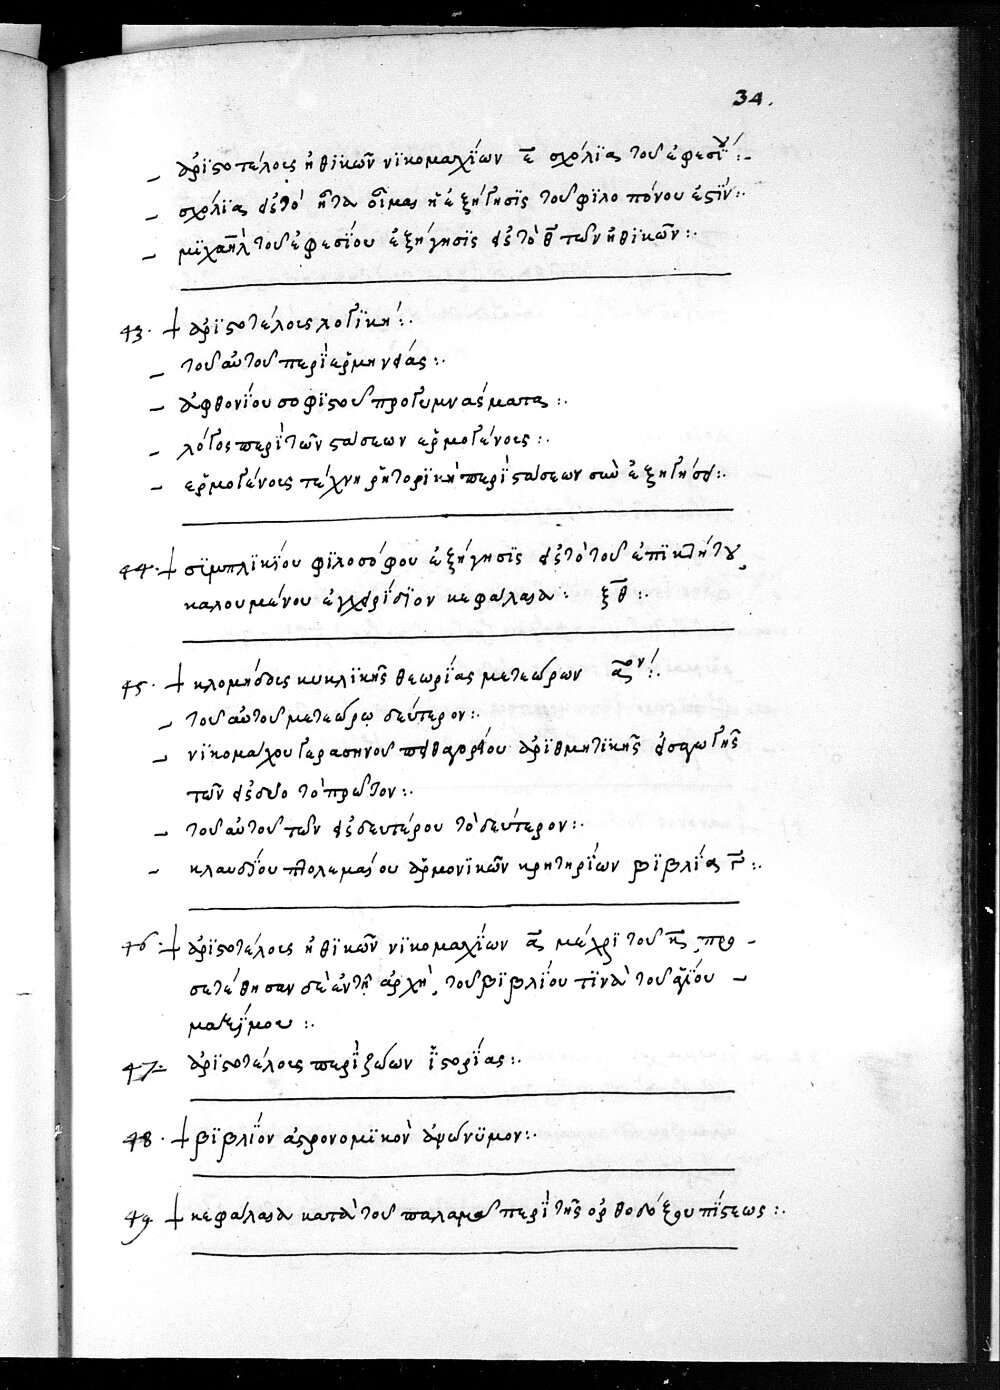 34.
– ἀρϊστοτέλους ἠθϊκῶν νϊκομαχΐων ε̅ σχόλϊα τοῦ ἐφεσίου :.
– σχόλϊα εἰς τὸ ἦτα οἶμαι ἡ ἐξήγησϊς τοῦ φϊλοπόνου ἐστΐν :
– μϊχαὴλ τοῦ ἐφεσΐου ἐξήγησϊς εἰς τὸ θ̅ τῶν ἠθϊκῶν :.
43. † ἀρϊστοτέλους λογϊκή :.
– τοῦ αὐτοῦ περὶ ἑρμηνείας :.
– ἀφθονΐου σοφϊστοῦ προγυμνάσματα :.
– λόγος περὶ τῶν στάσεων ἑρμογένους :.
– ἑρμογένους τέχνη ῥητορϊκὴ περὶ στάσεων σὺν ἐξηγήσει :.
44. † σϊμπλϊκΐου φϊλοσόφου ἐξήγησϊς εἰς τὸ τοῦ ἐπϊκτήτου,
καλουμένου ἐγχειρΐδϊον κεφάλαια : ξθ̅ :.
45. † κλομήδους κυκλϊκῆς θεωρΐας μετεώρων α̅ον :.
– τοῦ αὐτοῦ μετεώρω δεύτερον :.
– νϊκομάχου γερασηνοῦ πυθαγορείου ἀρϊθμητϊκῆς εἰσαγωγῆς
τῶν εἰς δύο τὸ πρῶτον :.
– τοῦ αὐτοῦ τῶν εἰς δευτέρου τὸ δεύτερον :.
– κλαυδΐου πτολεμαίου ἁρμονϊκῶν κρητηρΐων βϊβλΐα γ̅ :.
46. † ἀρϊστοτέλους ἠθϊκῶν νϊκομαχΐων α̅ μέχρϊ τοῦ κ̅, προ –
σετέθησαν δὲ ἐν τῇ ἀρχῇ, τοῦ βϊβλΐου τϊνὰ τοῦ ἁγΐου –
μαξΐμου :.
47. – ἀρϊστοτέλους περὶ ζώων ἱστορΐας :.
48. † βϊβλΐον ἀστρονομϊκὸν ἀνωνύμου :.
49. † κεφάλαια κατὰ τοῦ παλαμᾶ περὶ τῆς ὀρθοδόξου πΐστεως :.